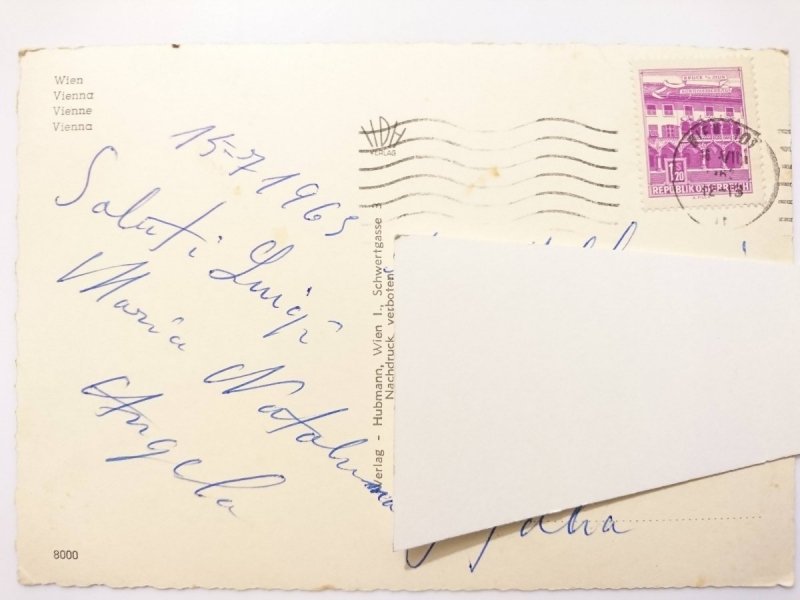 Wien
Vienna
Vienne
Vienna
15-7 1963
Saluti Luigi
Maria Natalina
Angela
8000
HDH
VERLAG
Verlag - Hubmann, Wien I., Schwertgasse 3
Nachdruck verboten
1S20
REPUBLIK ÖSTERREICH
12-13